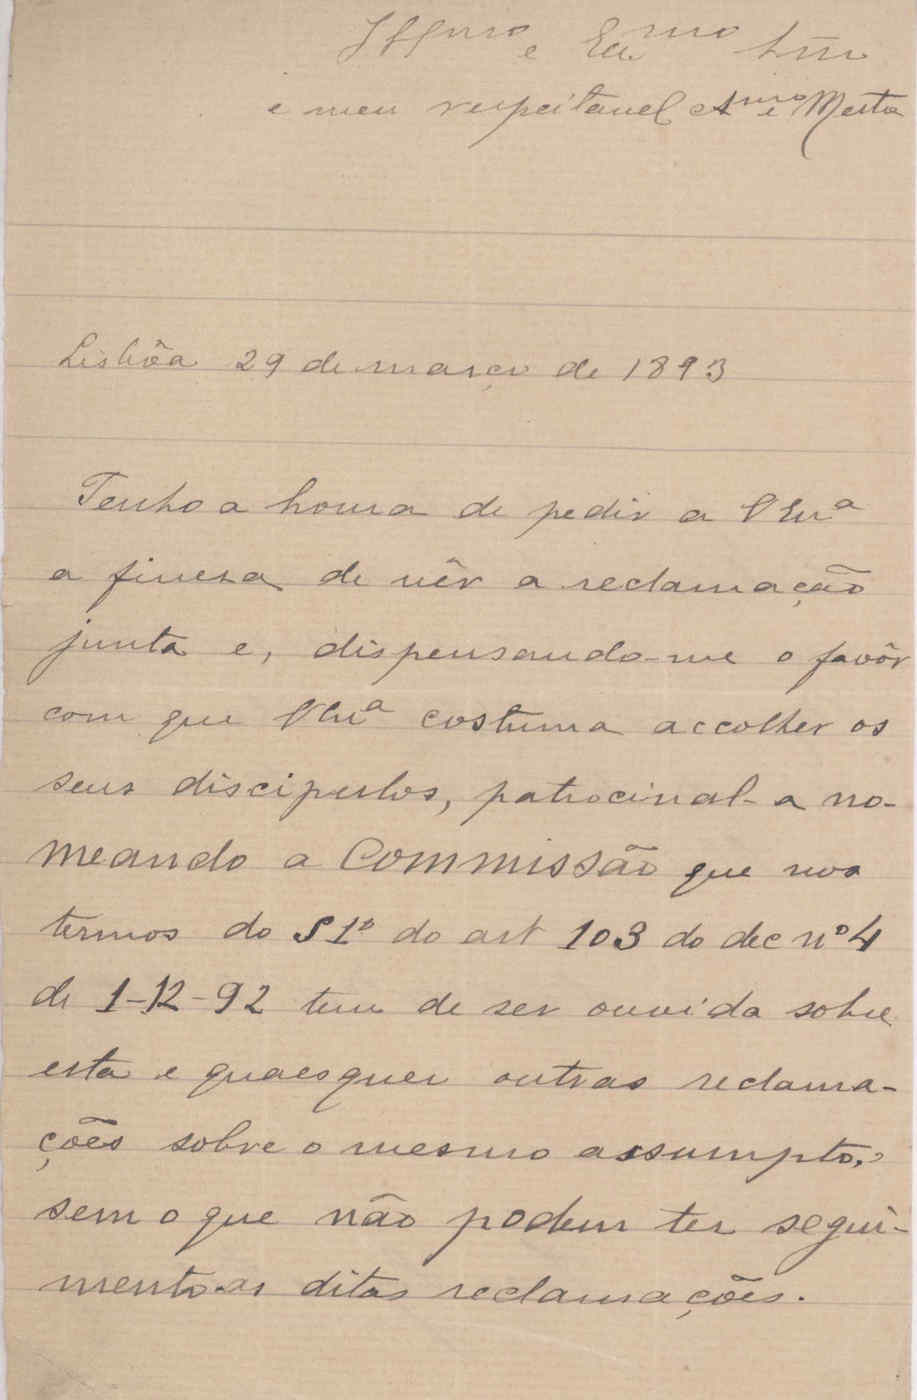 Illmo e Exmo Snr
e meu respeitavel Amo e Mestre
Lisbôa 29 de março de 1893
Tenho a honra de pedir a V Exa
a finesa de vêr a reclamação
junta e, dispensando-me o favôr
com que V Exa costuma accolher os
seus discipulos, patrocinal-a no-
meando a Commissão que nos
termos do § 1º do art 103 do dec nº 4
de 1-12-92 tem de ser ouvida sobre
esta e quaesquer outras reclama-
ções sobre o mesmo assumpto,
sem o que não podem ter segui-
mento as ditas reclamações.